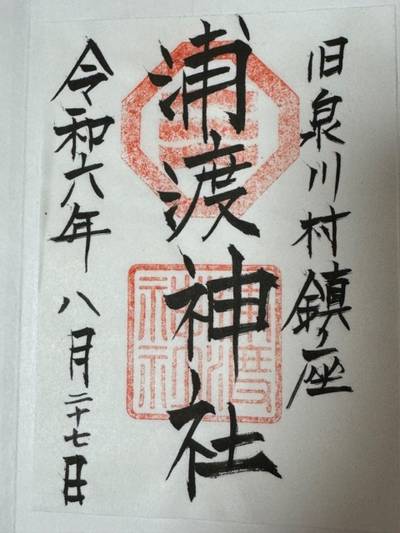 旧泉川村鎮座
浦渡神社
令和六年 八月二十七日